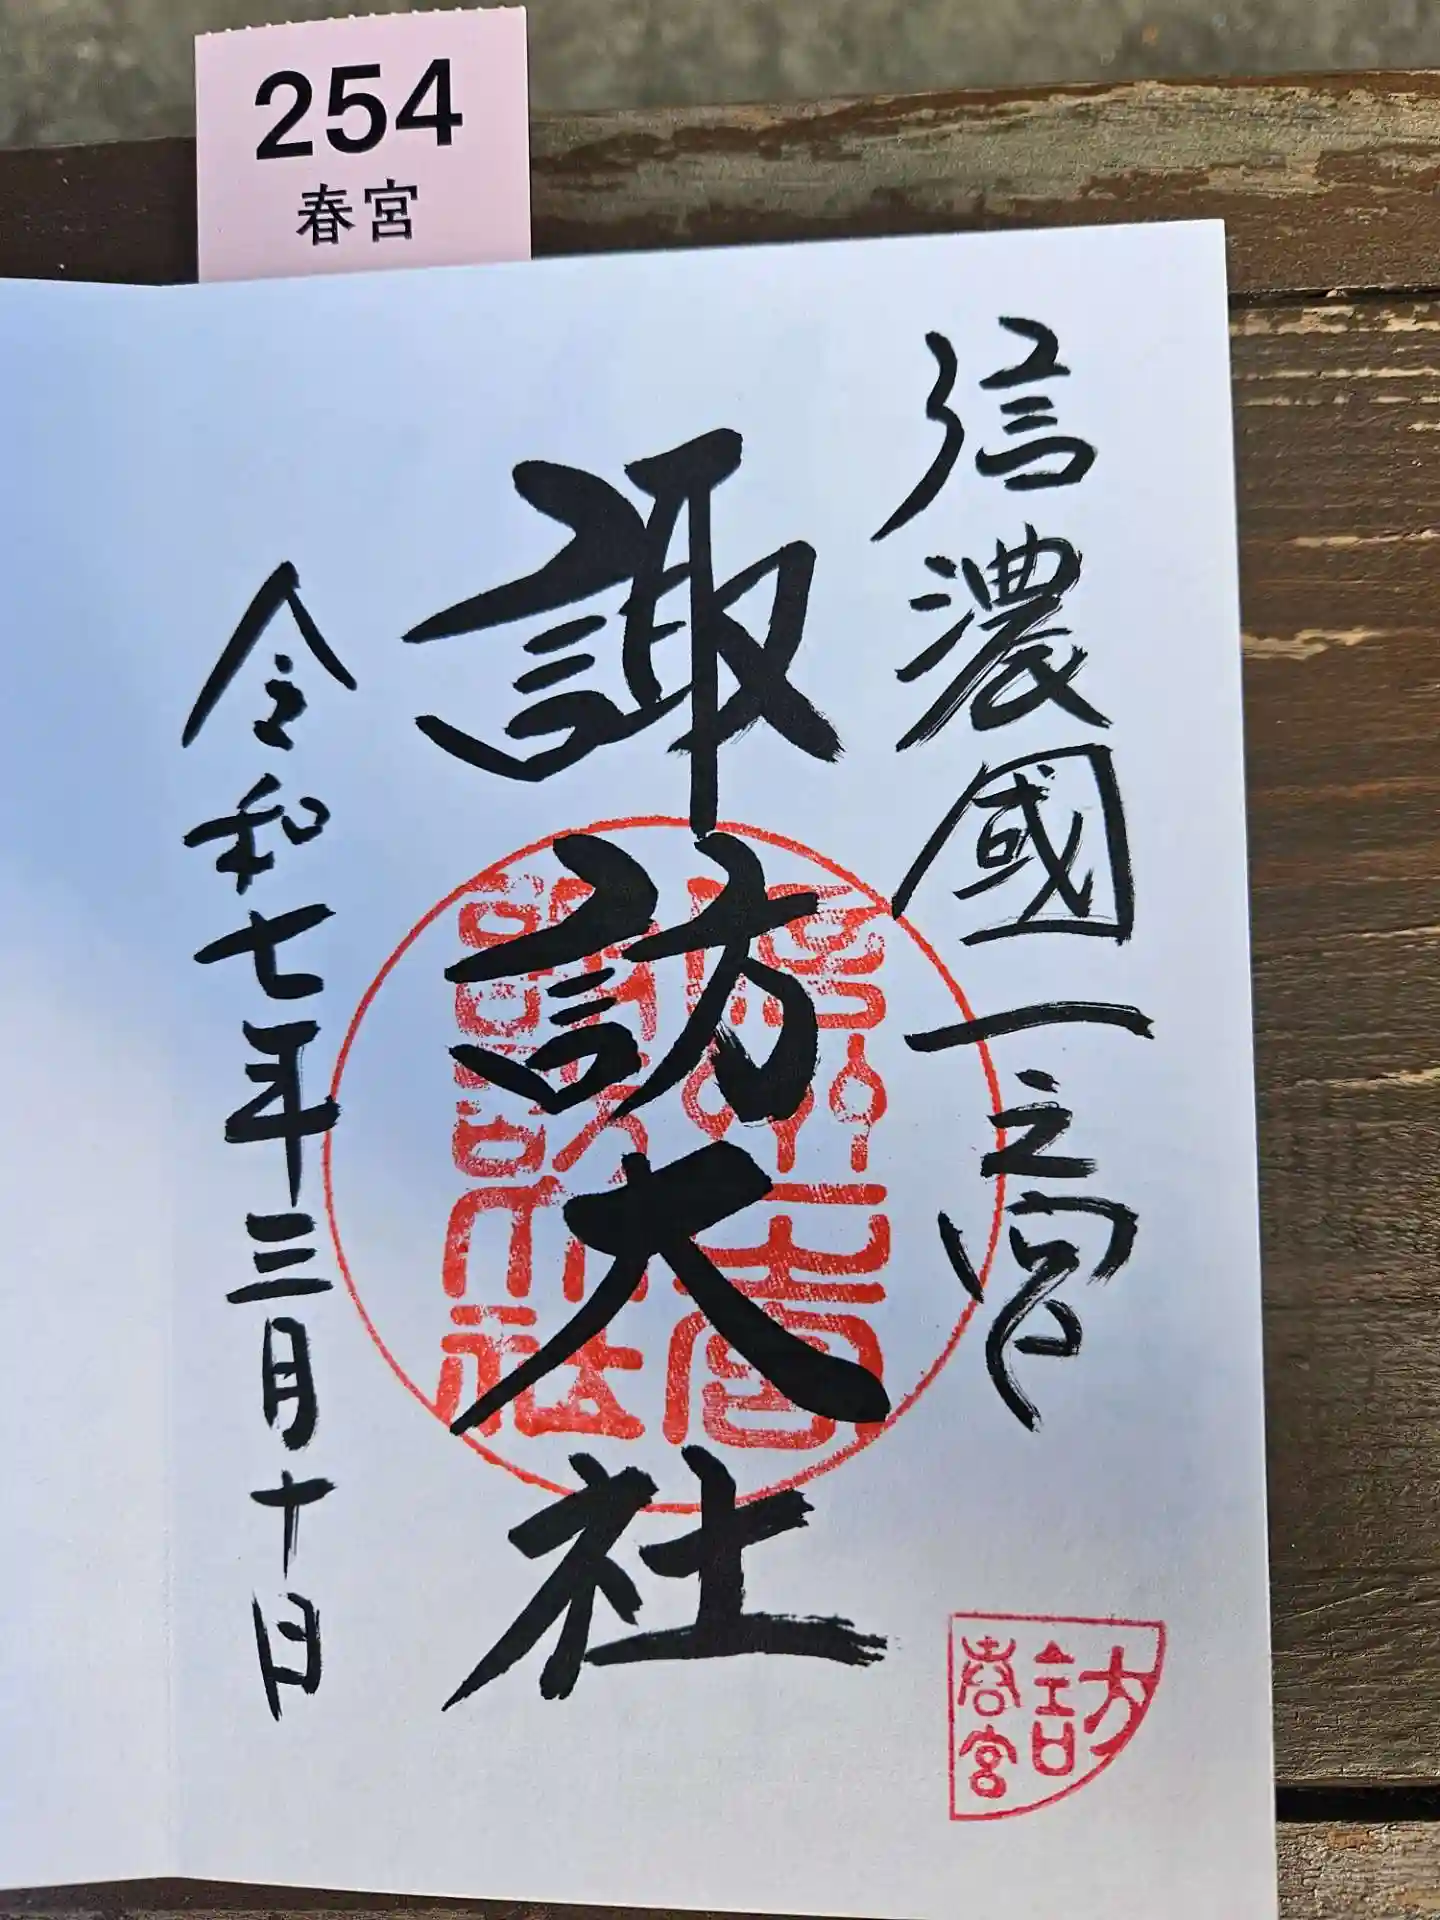 254
春宮
信濃國一之宮
諏訪大社
令和七年三月十日
訪
春宮